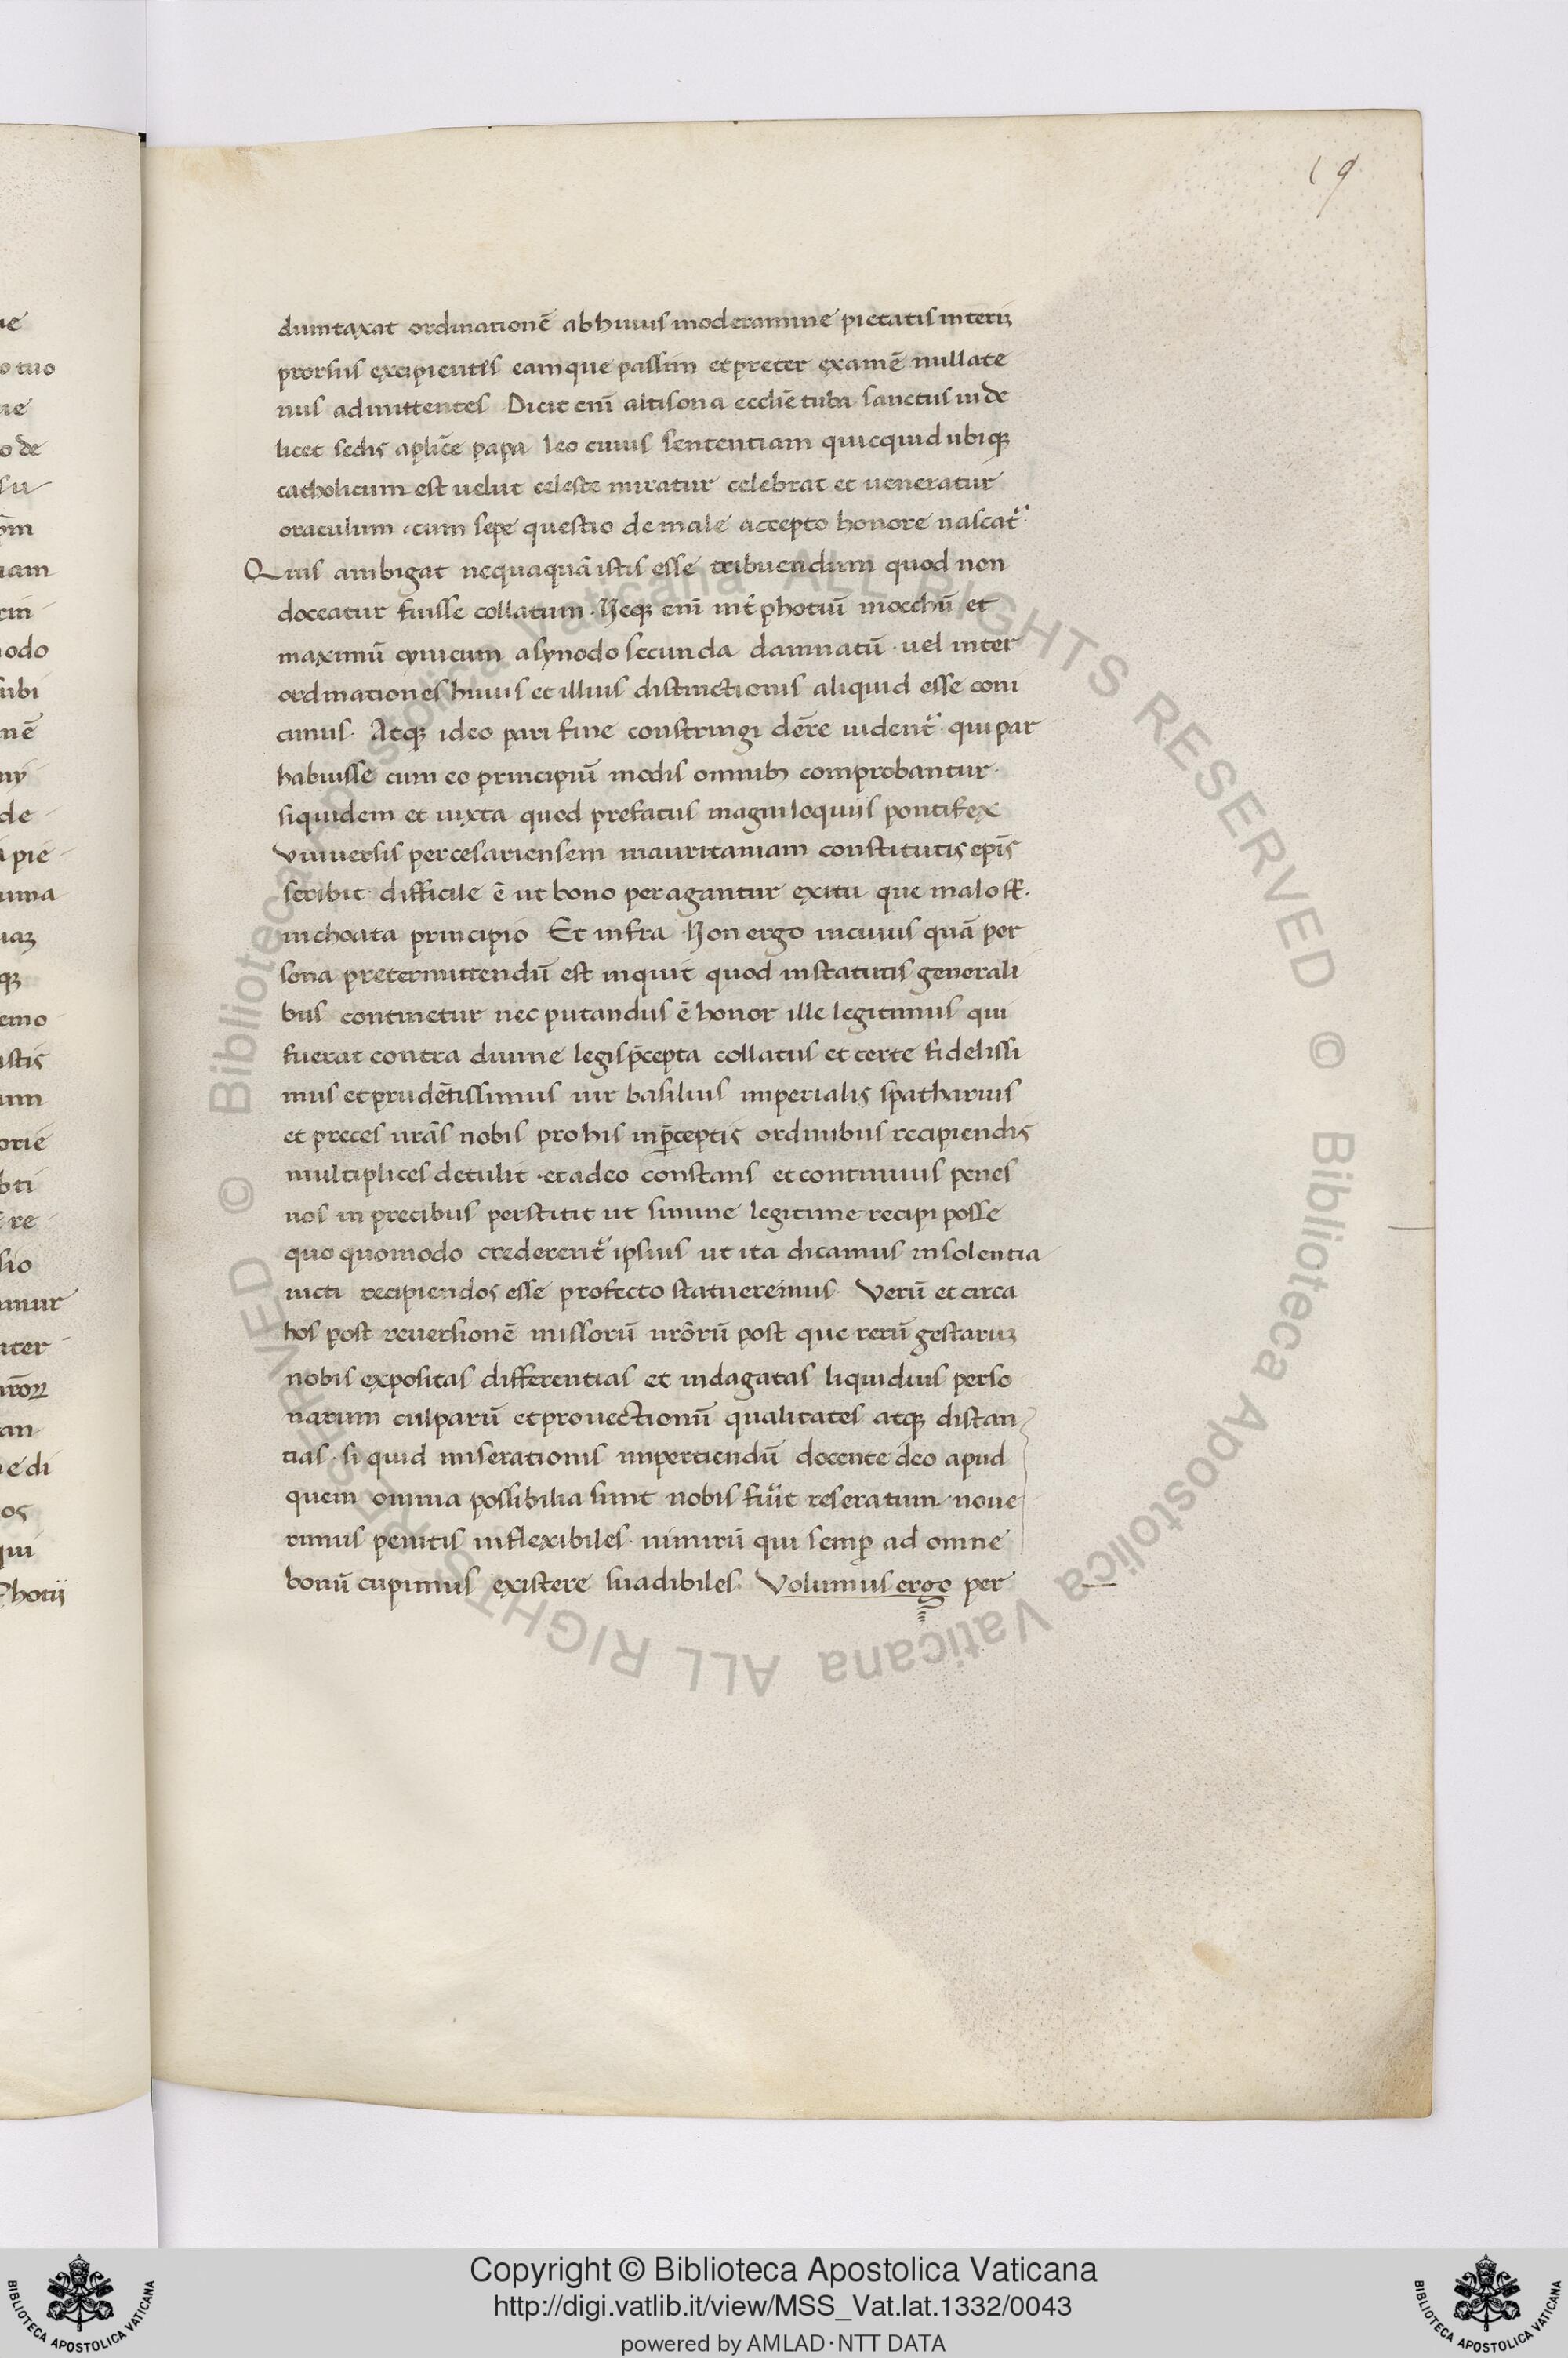 19
dumtaxat ordinationē ab huius moderamine pietatis interiꝫ
prorsus excipientes eamque passim et preter examē nullate
nus admittentes · Dicit eni᷑ altisona eccliē tuba sanctus uide
licet sedis aplicē papa leo cuius sententiam quicquid ubiqꝫ
catholicum est uelut celeste miratur celebrat et ueneratur
oraculum · cum sepe questio de male accepto honore nascat᷑ ·
Quis ambigat nequaquā istis esse tribuendum quod non
doceatur fuisse collatum · Neqꝫ eni᷑ int᷑ photiū mocchū et
maximū cynicum a synodo secunda damnatū · uel inter
ordinationes huius et illius distinctionis aliquid esse coni
cimus · Atqꝫ ideo pari fine constringi dēre uident᷑ · qui par
habuisse cum eo principiū modis omnibꝫ comprobantur ·
siquidem et iuxta quod prefatus magniloquus pontifex
vniuersis per cesariensem mauritaniam constitutis epīs
scribit · difficile ē ut bono peragantur exitu · que malo ſſ.
inchoata principio Et infra · Non ergo in cuius quā per
sona pretermittendū est inquit quod in statutis generali
bus continetur nec putandus ē honor ille legitimus qui
fuerat contra diuine legis p̄cepta collatus et certe fidelissi
mus et prudētissimus uir basilius imperialis spatharius
et preces urās nobis pro his in p̄ceptis ordinibus recipiendis
multiplices detulit · et adeo constans et continuus penes
nos in precibus perstitit ut sinune legitime recipi posse
quo quomodo crederent᷑ ipsius ut ita dicamus insolentia
uicti recipiendos esse profecto statueremus · Verū et circa
hos post reuersionē missorū urōrū post que rerū gestaruꝫ
nobis expositas differentias et indagatas liquidius perso
narum culparū et prouectionū qualitates atqꝫ distan
tias · si quid miserationis impertiendū docente deo apud
quem omnia possibilia sunt nobis fuīt reseratum · noue
rimus penitis inflexibiles · nimirū qui semꝑ ad omne
bonū cupimus existere suadibiles · Volumus ergo per
Copyright © Biblioteca Apostolica Vaticana
http://digi.vatlib.it/view/MSS_Vat.lat.1332/0043
powered by AMLAD·NTT DATA